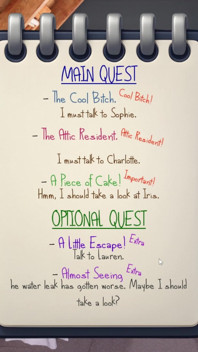 MAIN QUEST
- The Cool Bitch. Cool Bitch!
I must talk to Sophie.
- The Attic Resident. Attic Resident!
I must talk to Charlotte.
- A Piece of Cake! Important!
Hmm, I should take a look at Iris.
OPTIONAL QUEST
- A Little Escape! Extra
Talk to Lauren.
- Almost Seeing Extra
he water leak has gotten worse. Maybe I should
take a look?